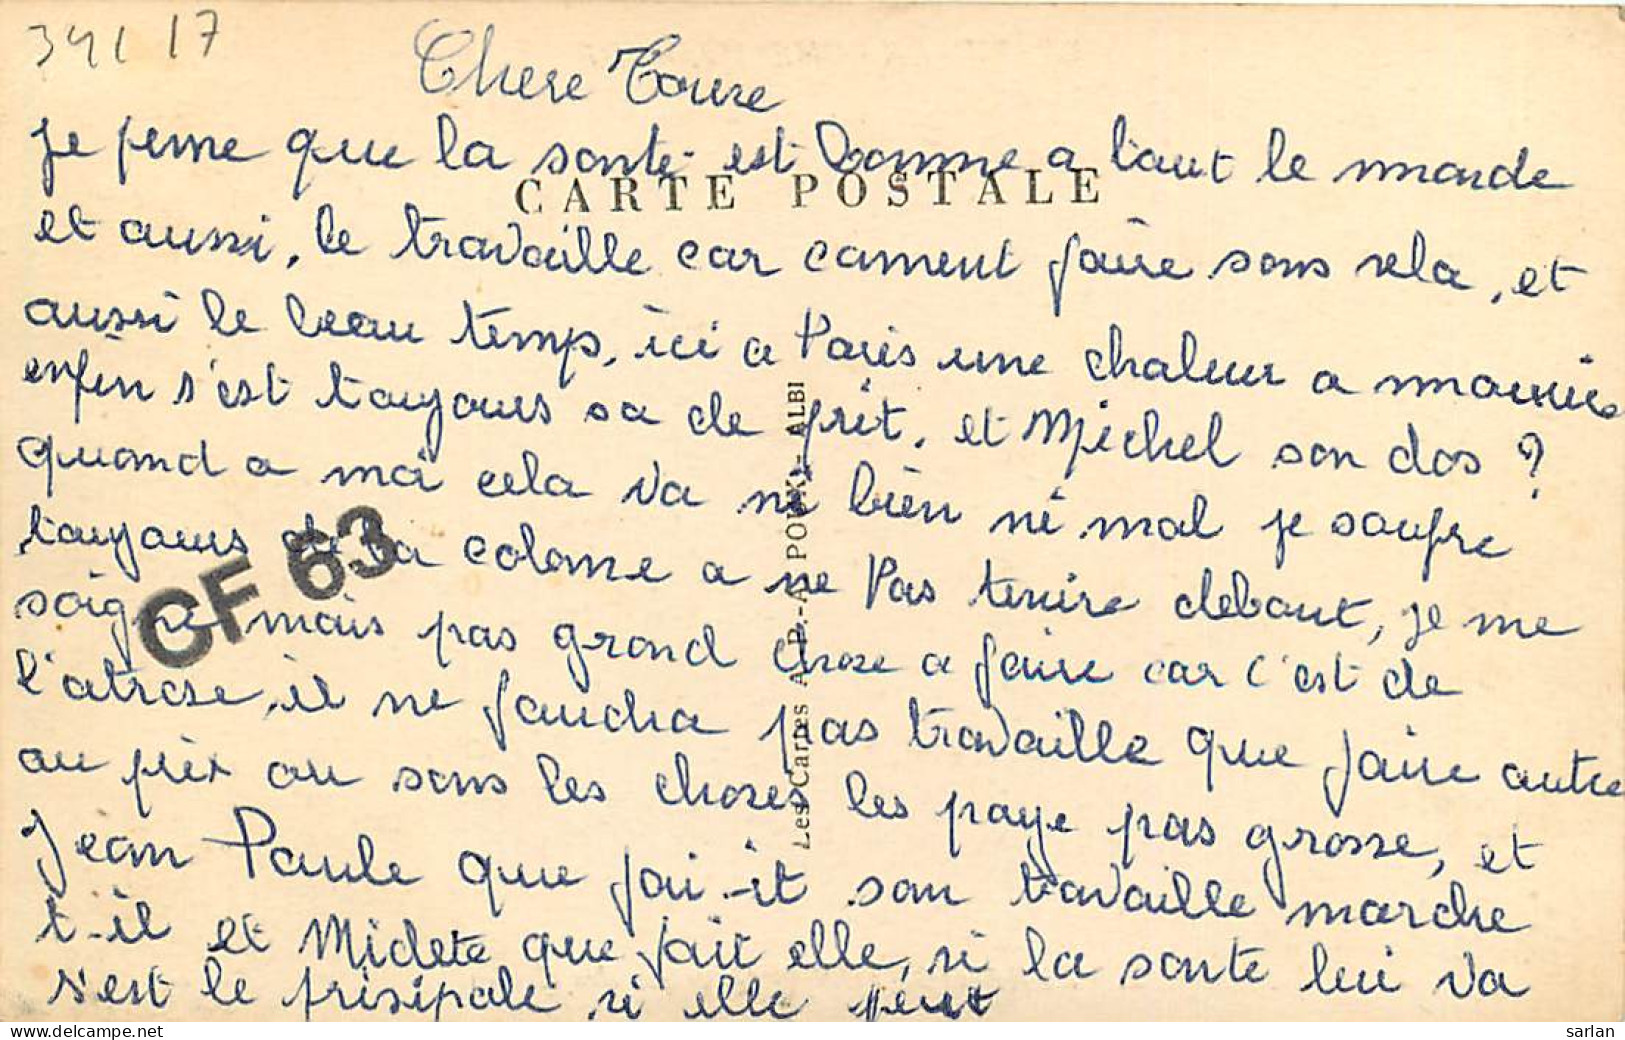 341 17
Chere Toure
je pense que la sante est Bonne a tout le monde
CARTE POSTALE
et aussi, le travaille car coment faire sans sela, et
aussi le beau temp, ici a Paris une chaleur a mourire
enfin s'est toujours sa de prit, et Michel son dos ?
quand a moi cela va ni bien ni mal je soufre
toujours de la colonne a ne Pas tenire debout, je me
soigne mais pas grand chose a faire car c'est de
l'atrose, il ne faudra pas travaille que faire autre
au prix ou sons les choses les paye pas grosse, et
Jean Paule que fai-it son travaille marche
t-il et Midete que fait elle, si la sante lui va
s'est le prisipale si elle peut
CF 63
Les Cartes A.P.-A POUX - ALBI
sarlan